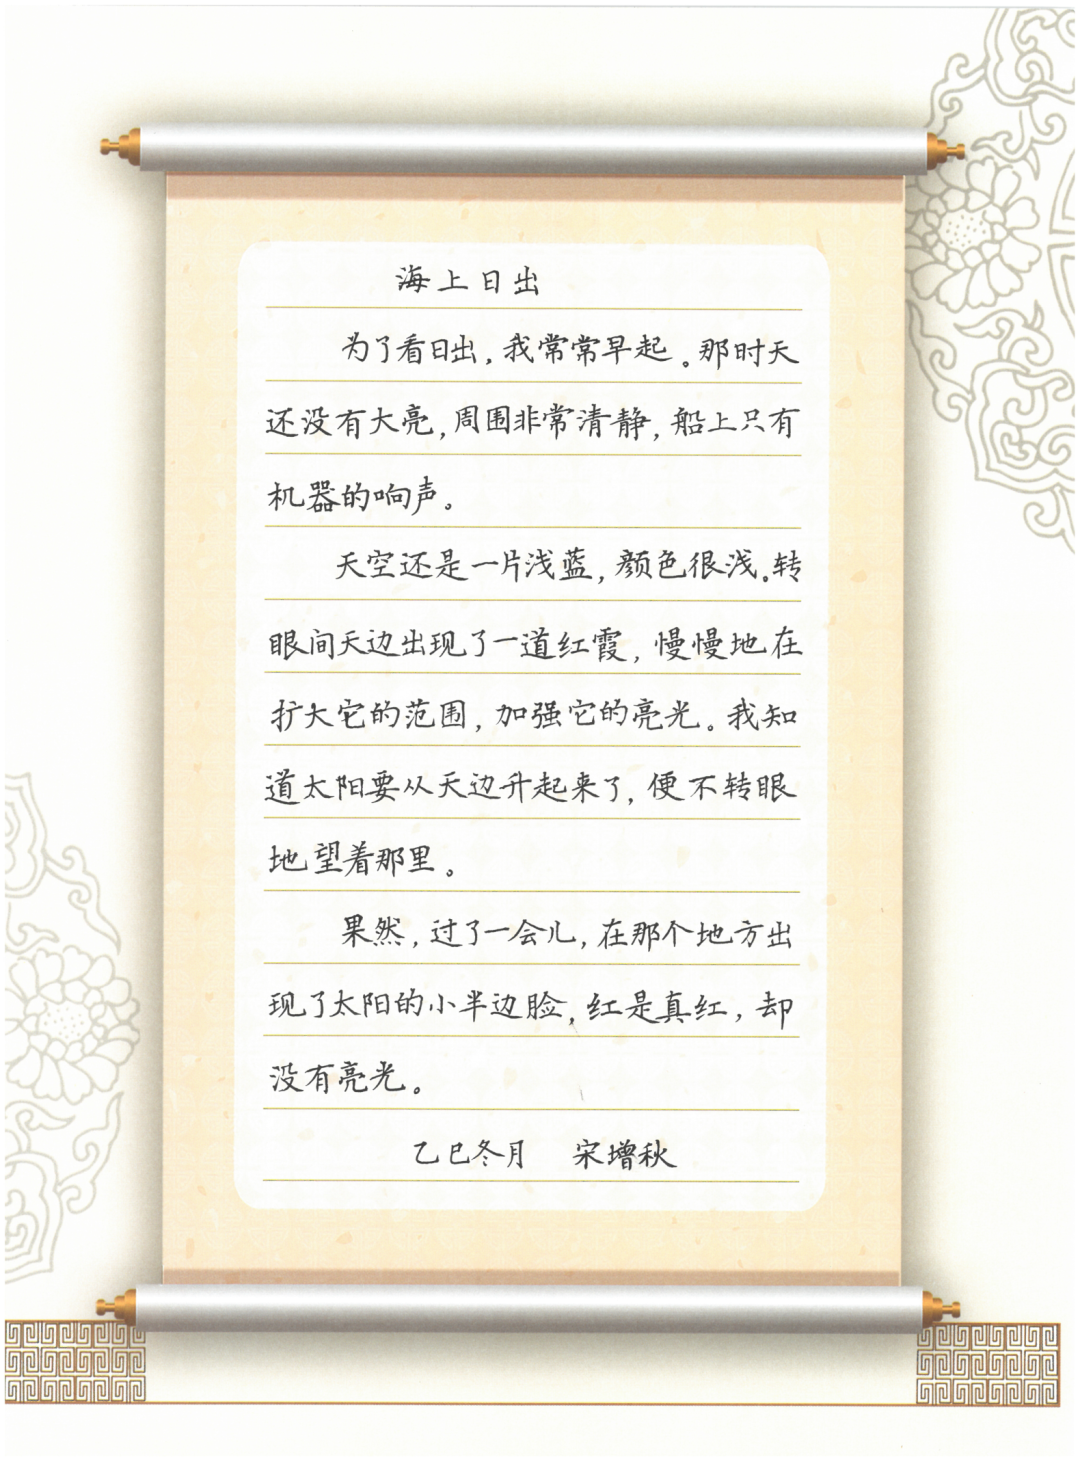 海上日出
为了看日出，我常常早起。那时天
还没有大亮，周围非常清静，船上只有
机器的响声。
天空还是一片浅蓝，颜色很浅。转
眼间天边出现了一道红霞，慢慢地在
扩大它的范围，加强它的亮光。我知
道太阳要从天边升起来了，便不转眼
地望着那里。
果然，过了一会儿，在那个地方出
现了太阳的小半边脸，红是真红，却
没有亮光。
乙巳冬月 宋增秋